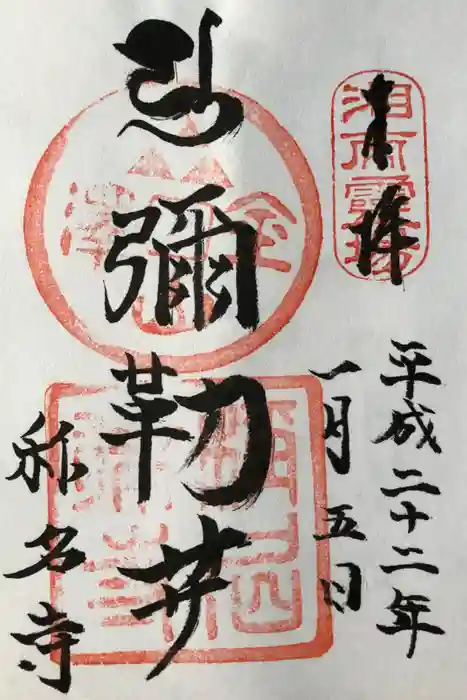 奉拝
湘南霊場
平成二十二年
一月五日
彌勒井
称名寺